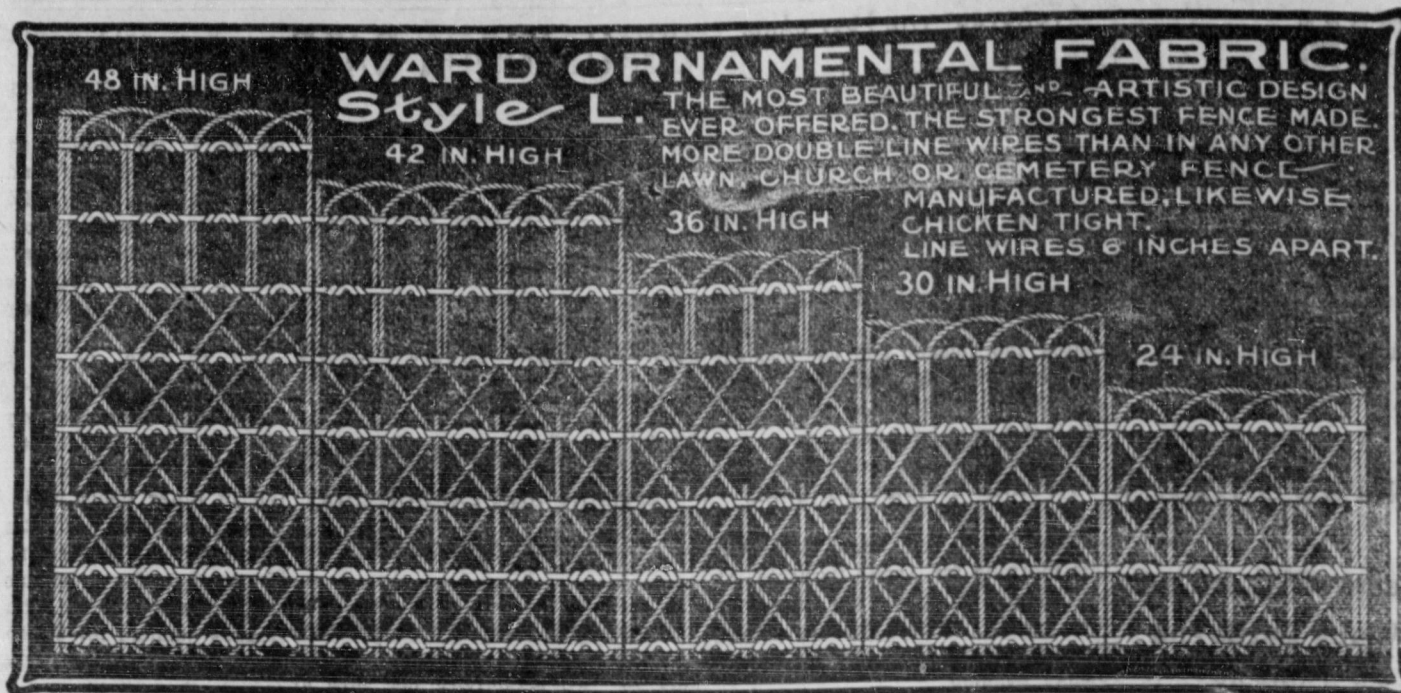 48 IN. HIGH
WARD ORNAMENTAL FABRIC.
Style L.
THE MOST BEAUTIFUL AND ARTISTIC DESIGN
EVER OFFERED. THE STRONGEST FENCE MADE.
MORE DOUBLE LINE WIRES THAN IN ANY OTHER
LAWN, CHURCH OR CEMETERY FENCE
MANUFACTURED, LIKEWISE
CHICKEN TIGHT.
LINE WIRES 6 INCHES APART.
42 IN. HIGH
36 IN. HIGH
30 IN. HIGH
24 IN. HIGH